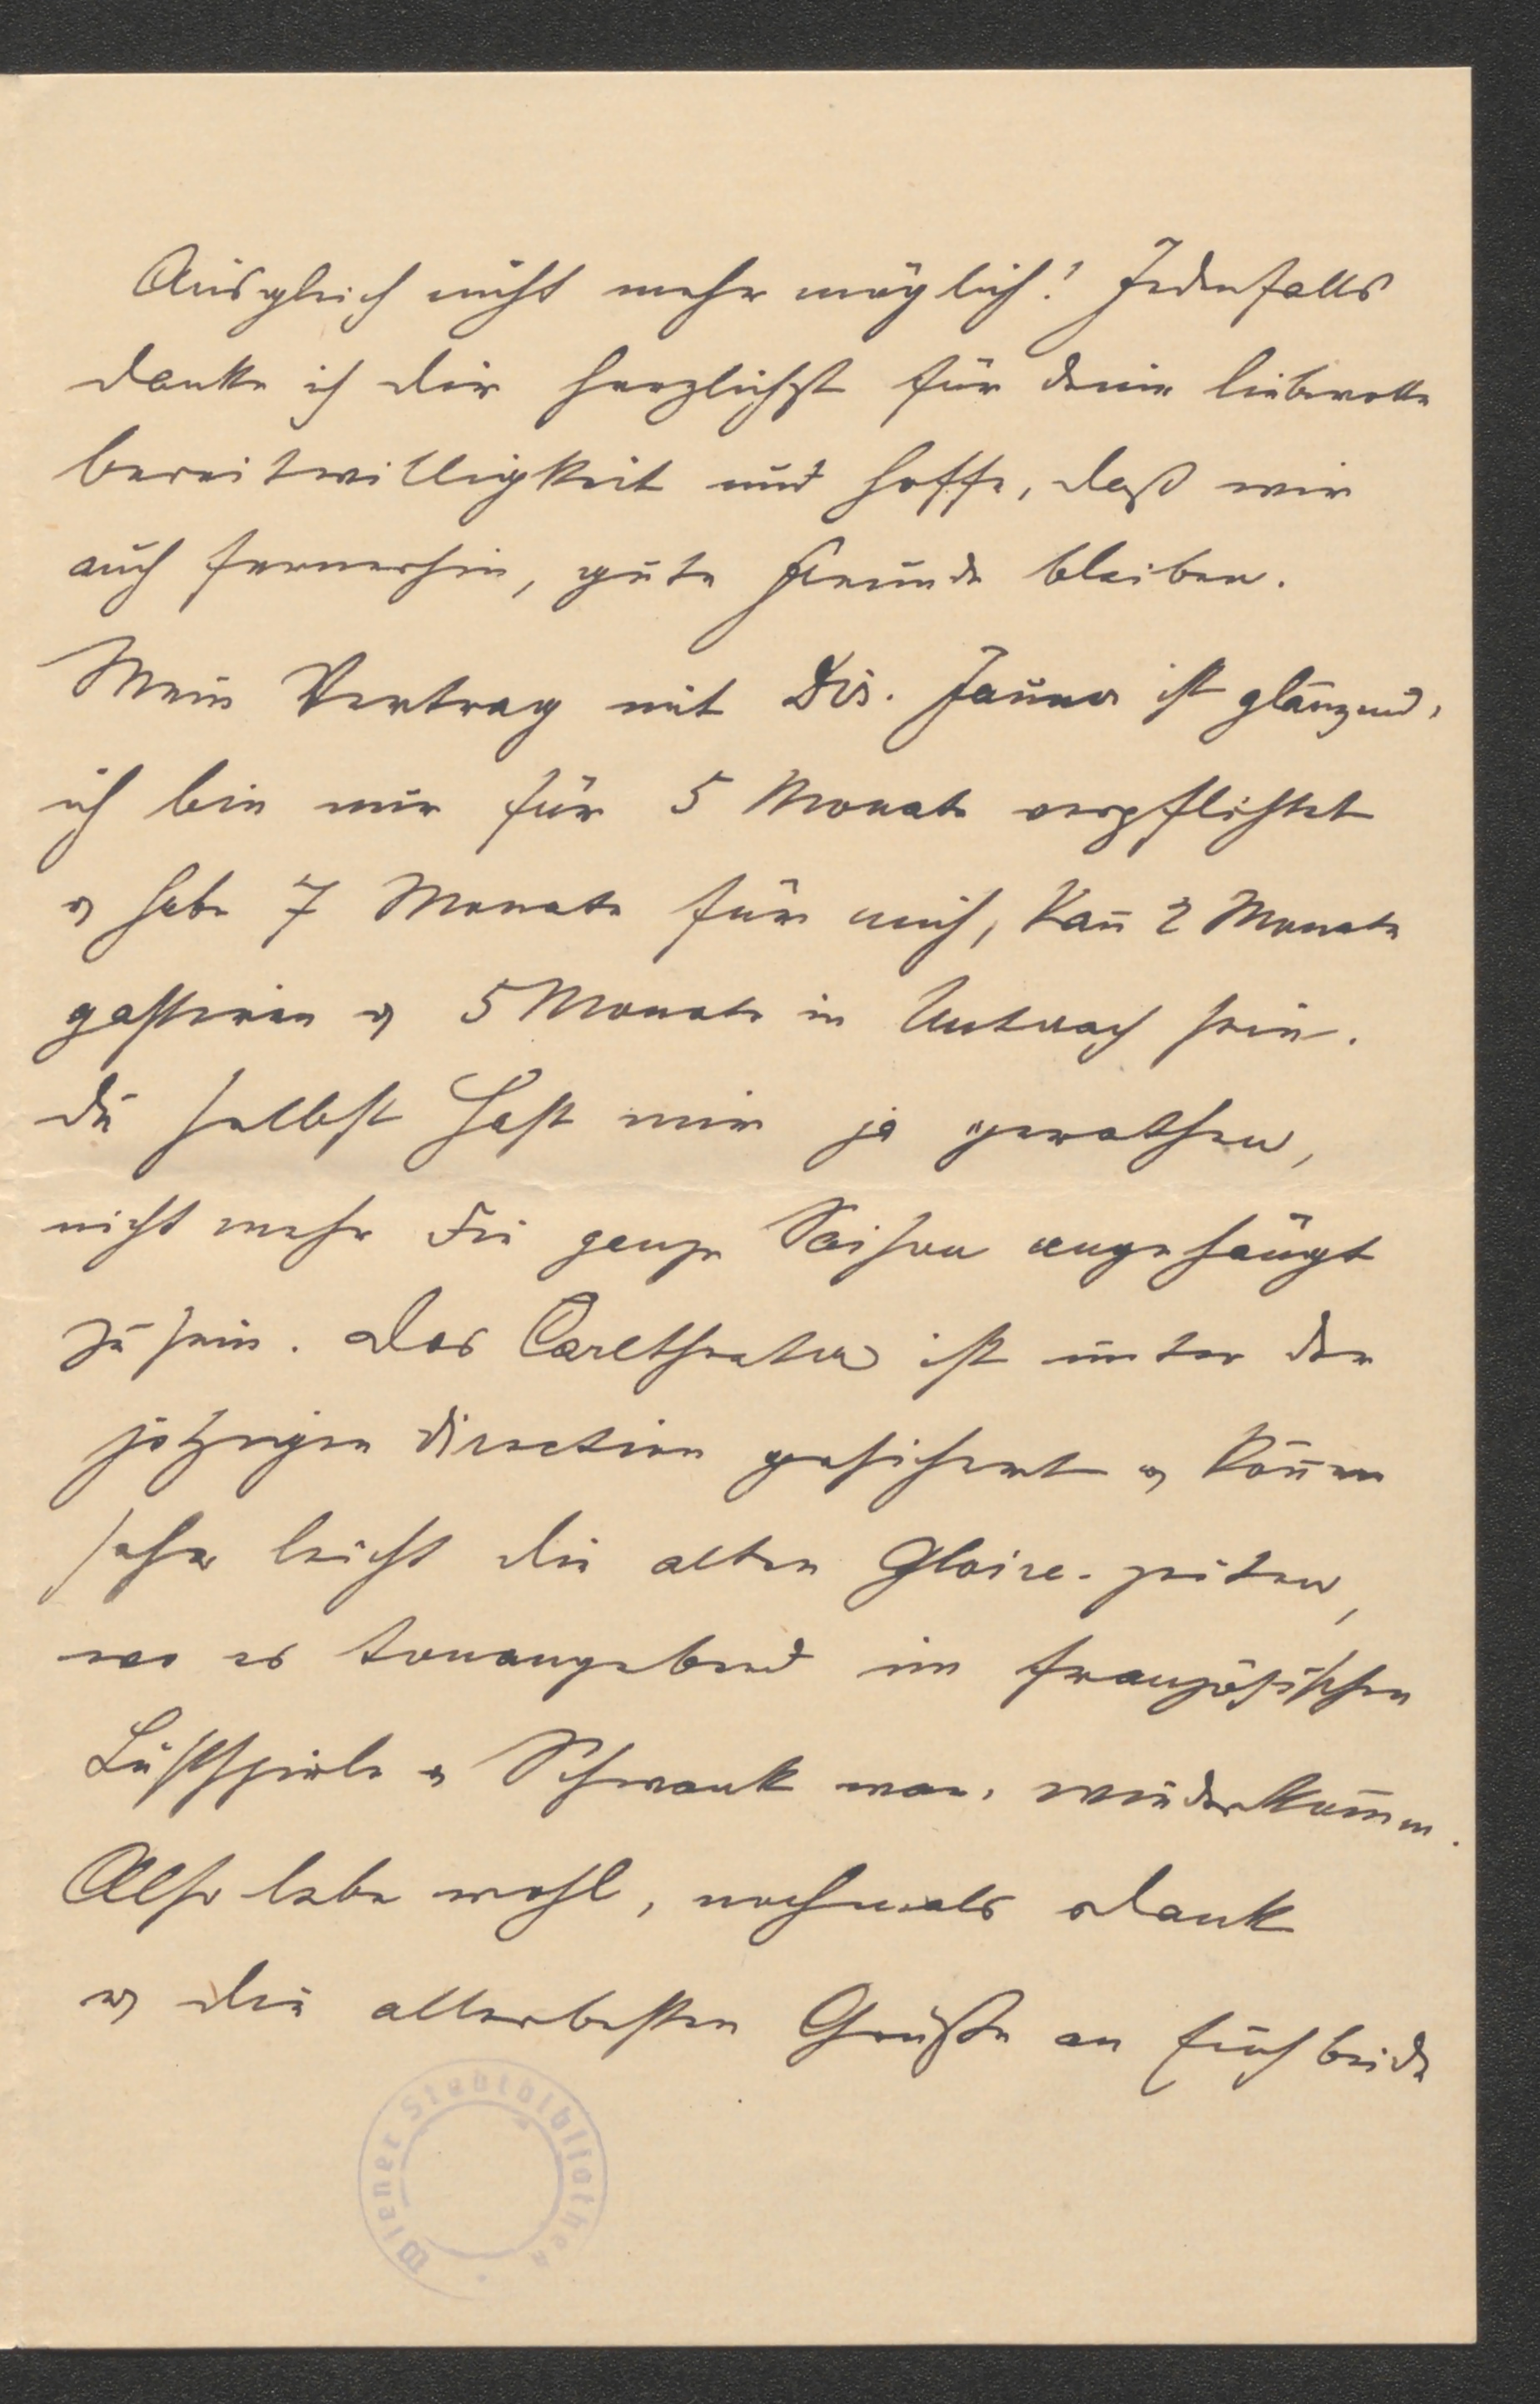 Ausgleich nicht mehr möglich! Jedenfalls
danke ich dir herzlichst für deine liebevolle
bereitwilligkeit und hoffe, daß wir
auch fernerhin, gute Freunde bleiben.
Mein Vertrag mit Dir. Jauner ist glänzend,
ich bin nur für 5 Monate verpflichtet
u habe 7 Monate für mich, kan̄ 2 Monate
gastieren u 5 Monate in Unterach sein.
du selbst hast mir ja gerathen,
nicht mehr die ganze Saison angehängt
zu sein. das Carltheater ist unter der
jetzigen direction gesichert u kön̄en
sehr leicht die alten Gloire-zeiten,
wo es tonangebend im französischen
Lustspiele u Schwank war, wiederkom̄en.
Also lebe wohl, nochmals dank
u die allerbesten Grüße an Euch beide
Wiener Stadtbibliothek